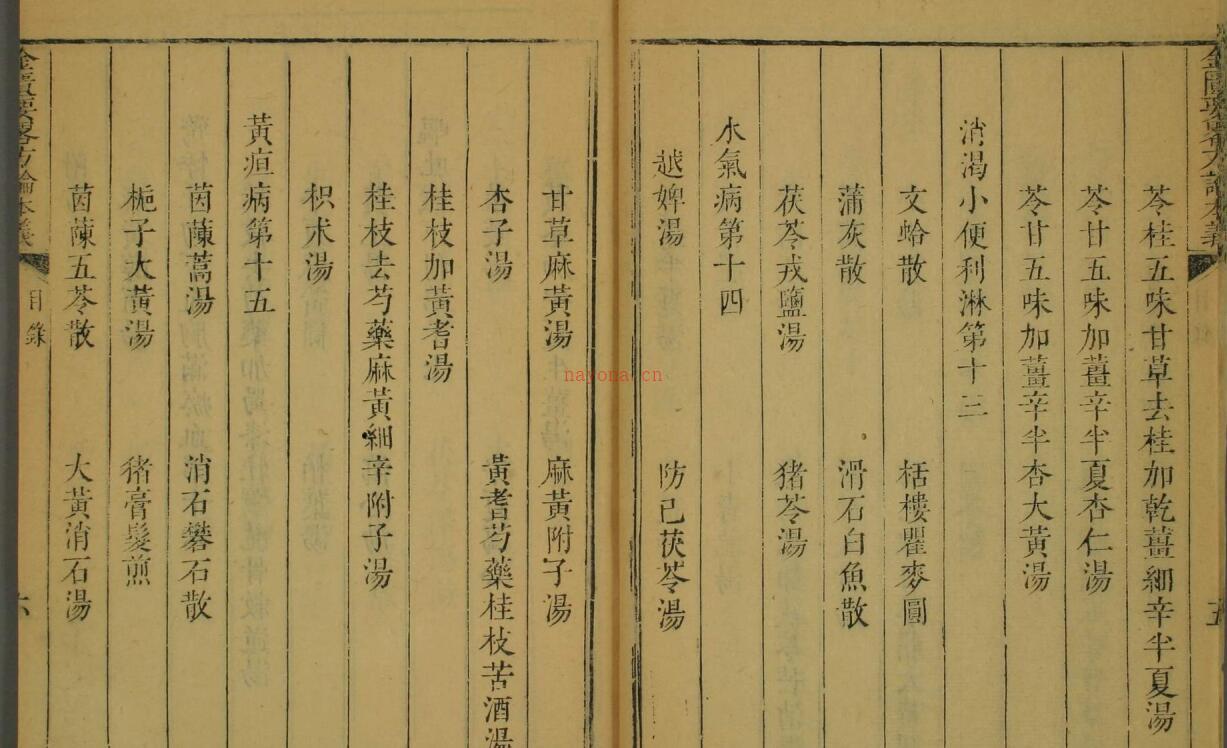 苓桂五味甘草去桂加乾薑細辛半夏湯
苓甘五味加薑辛半夏杏仁湯
苓甘五味加薑辛半杏大黃湯
消渴小便利淋第十三
文蛤散 栝樓瞿麥圓
蒲灰散 滑石白魚散
茯苓戎鹽湯 猪苓湯
水氣病第十四
越婢湯 防己茯苓湯
甘草麻黃湯 麻黃附子湯
杏子湯 黃耆芍藥桂枝苦酒湯
桂枝加黃耆湯
桂枝去芍藥麻黃細辛附子湯
枳朮湯
黃疸病第十五
茵蔯蒿湯 消石礬石散
梔子大黃湯 猪膏髮煎
茵蔯五苓散 大黃消石湯
目錄
六
nayona.cn